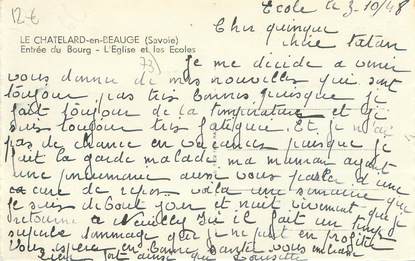 12 €
École le 3-10/48
Cher quinquin
LE CHATELARD-en-BEAUGE (Savoie)
Entrée du Bourg - L'Eglise et les Ecoles
73)
chère tatan
Je me décide a venir
vous donner de mes nouvelles qui sont
toujour pas très bonnes puisque je
fait toujour de la température et je
suis toujour très fatigué. Et je n'ai
pas de chance en vacances puisque je
fait la garde malade ma maman ayant
une pneumonie aussi vous parlé d'une
cure de repos voilà une semaine que
je suis debout jour et nuit vivement que je
retourne a Neuilly Ici il fait un temps
superbe dommage que je ne puet en profiter
Vous espère en bonne santé vous embrasse
bien fort ainsi que Lousette